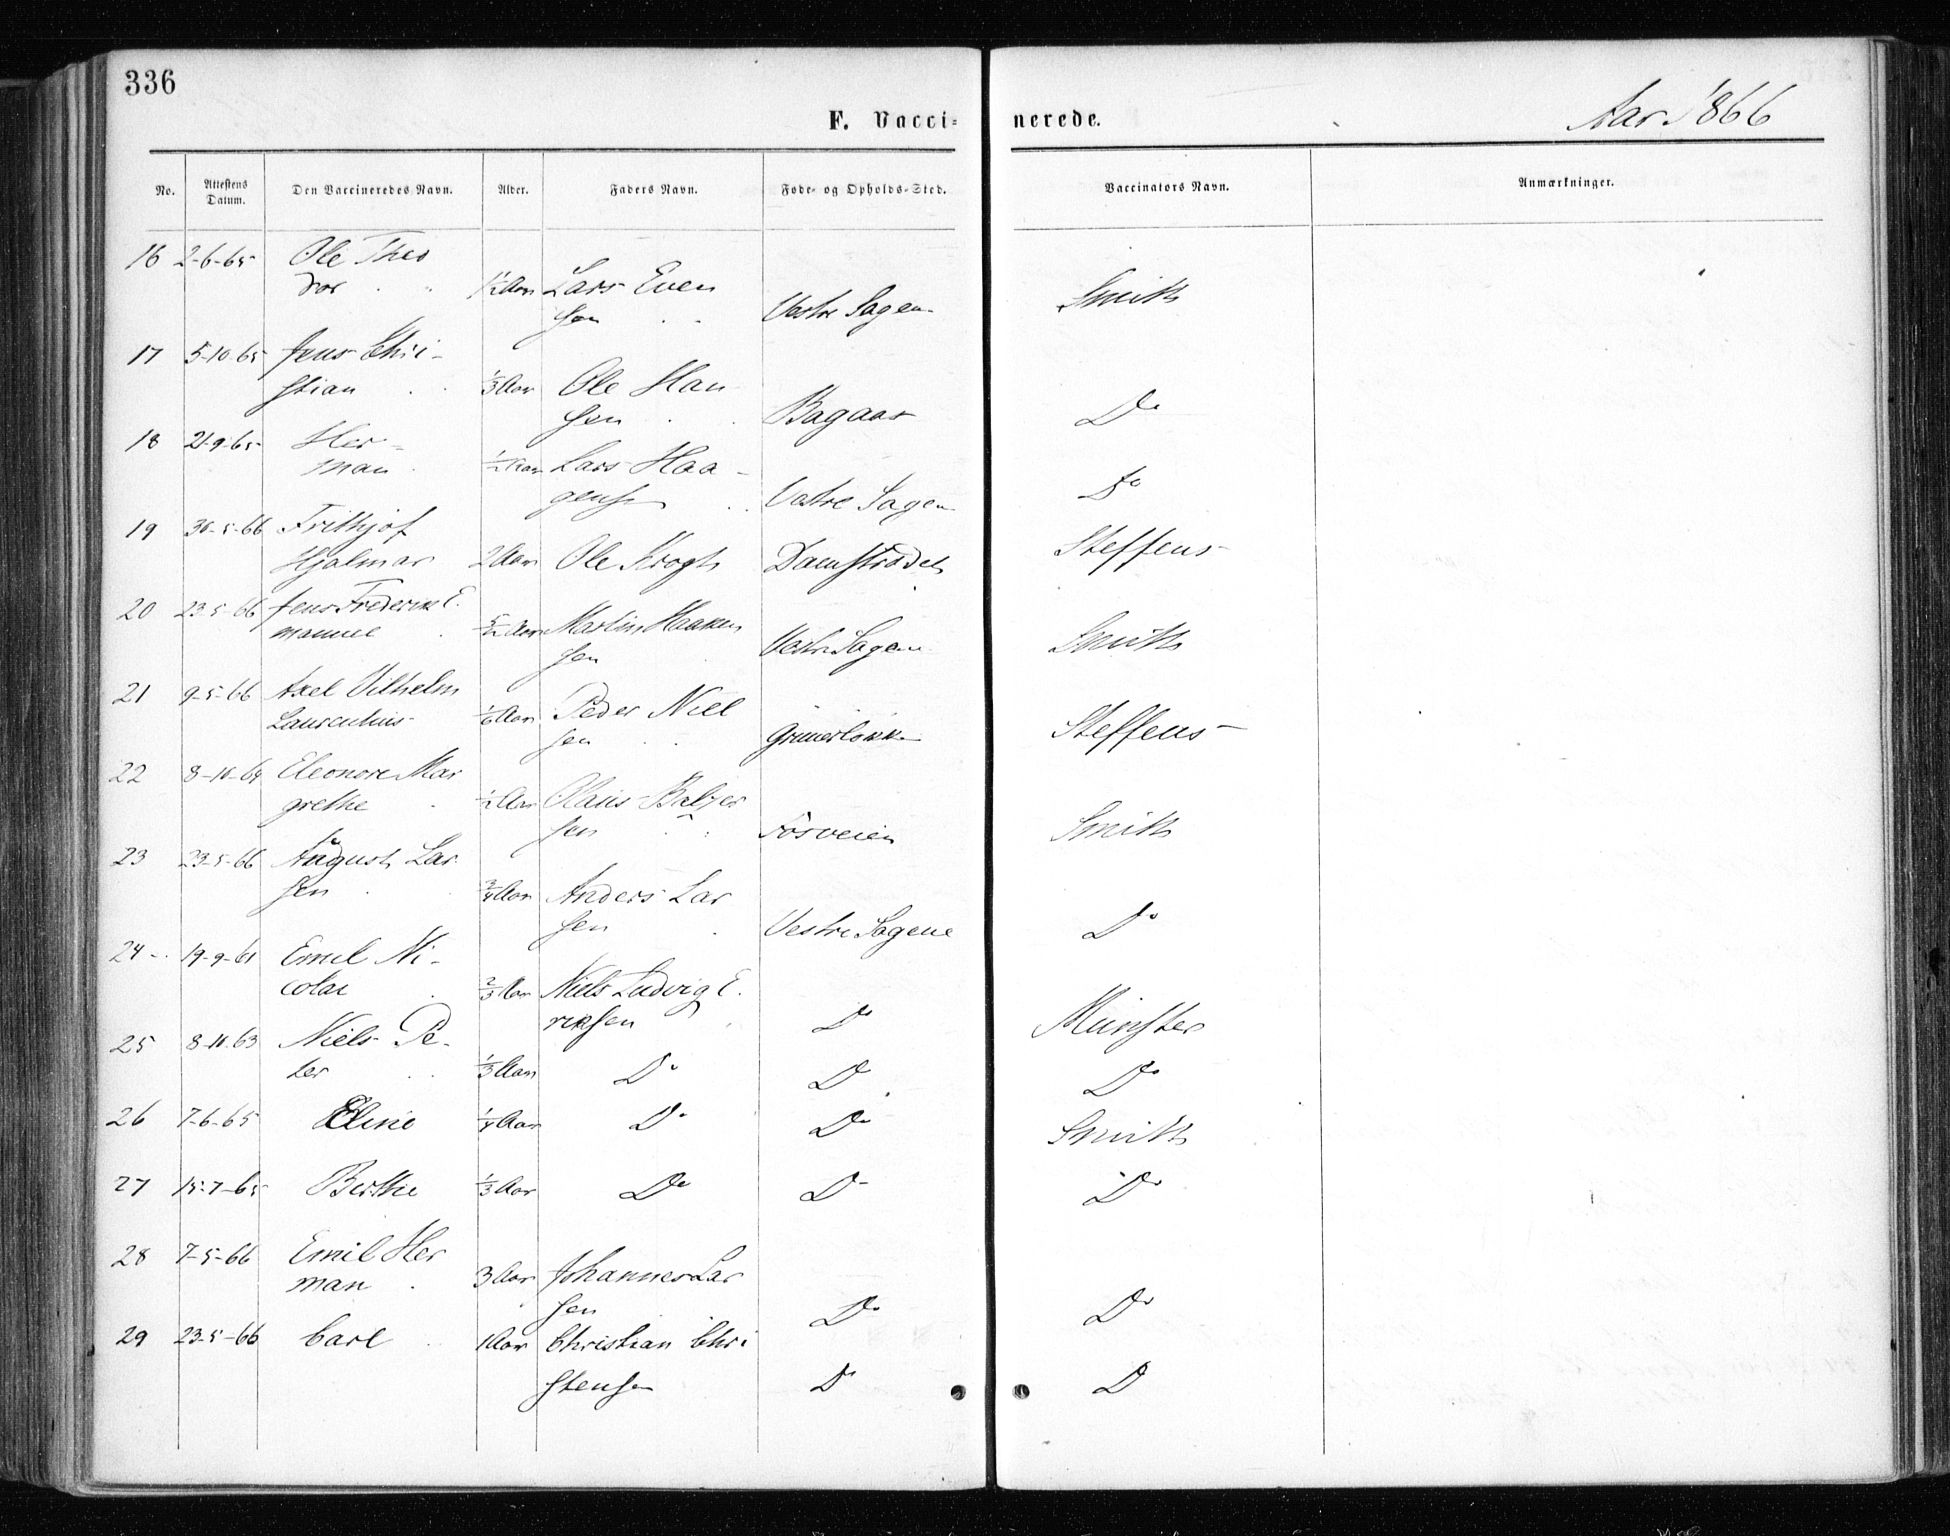 336
F. Vacci- nerede.
Aar 1866
No. Attestens Datum. Den Vaccineredes Navn. Alder. Faders Navn. Føde- og Opholds-Sted. Vaccinators Navn. Anmærkninger.
16 2-6-65 Ole Theo
dor 1½ Aar Lars Even
sen Vestre Sagen Smith
17 5-10-65 Jens Chri-
stian ⅓ Aar Ole Han
sen Bagaas Do
18 21-9-65 Her-
man ½ Aar Lars Haa-
gensen Vestre Sagen Do
19 30-5-66 Frithjof
Hjalmar 2 Aar Ole Krogh Damstrædet Steffens
20 23-5-66 Jens Frederik E.
manuel 5/12 Aar Martin Haaken
sen Vestre Sagen Smith
21 9-5-66 Axel Vilhelm
Laurentius ⅙ Aar Peder Niel
sen Grünerløkk Steffens
22 8-10-64 Eleonore Mar
grethe ½ Aar Olaus Balzer
sen Fosveien Smith
23 23-5-66 August Lar
sen ¾ Aar Anders Lar
sen Vestre Sagene Do
24 19-9-61 Emil Ni-
colai ⅔ Aar Niels Ludvig E.
riksen Do Münster
25 8-11-63 Niels Pe-
ter ⅓ Aar Do Do Do
26 7-6-65 Eline ¼ Aar Do Do Smith
27 15-7-65 Berthe ⅓ Aar Do Do Do
28 7-5-66 Emil Her
man 3 Aar Johannes Lar
sen Do Do
29 23-5-66 Carl 1 Aar Christian Chri
stensen Do D